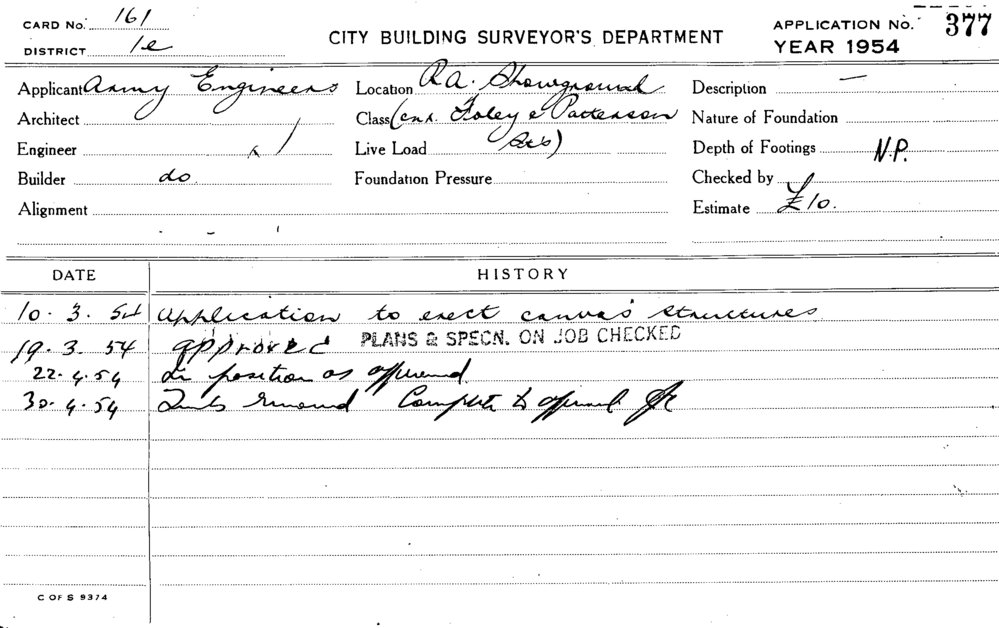 CARD No. 161
DISTRICT 1e
CITY BUILDING SURVEYOR'S DEPARTMENT
APPLICATION No. 377
YEAR 1954
Applicant Army Engineers
Location R.A. Showground
Description —
Architect
Class (cnr. Foley & Patterson Sts)
Nature of Foundation
Engineer
Live Load
Depth of Footings N.P.
Builder do
Foundation Pressure
Checked by
Alignment
Estimate £10.
DATE HISTORY
10. 3. 54 Application to erect canvas structures
19. 3. 54 approved PLANS & SPECN. ON JOB CHECKED
22. 4. 54 In position as approved
30. 4. 54 Tents removed Complete to approval
C OF S 9374